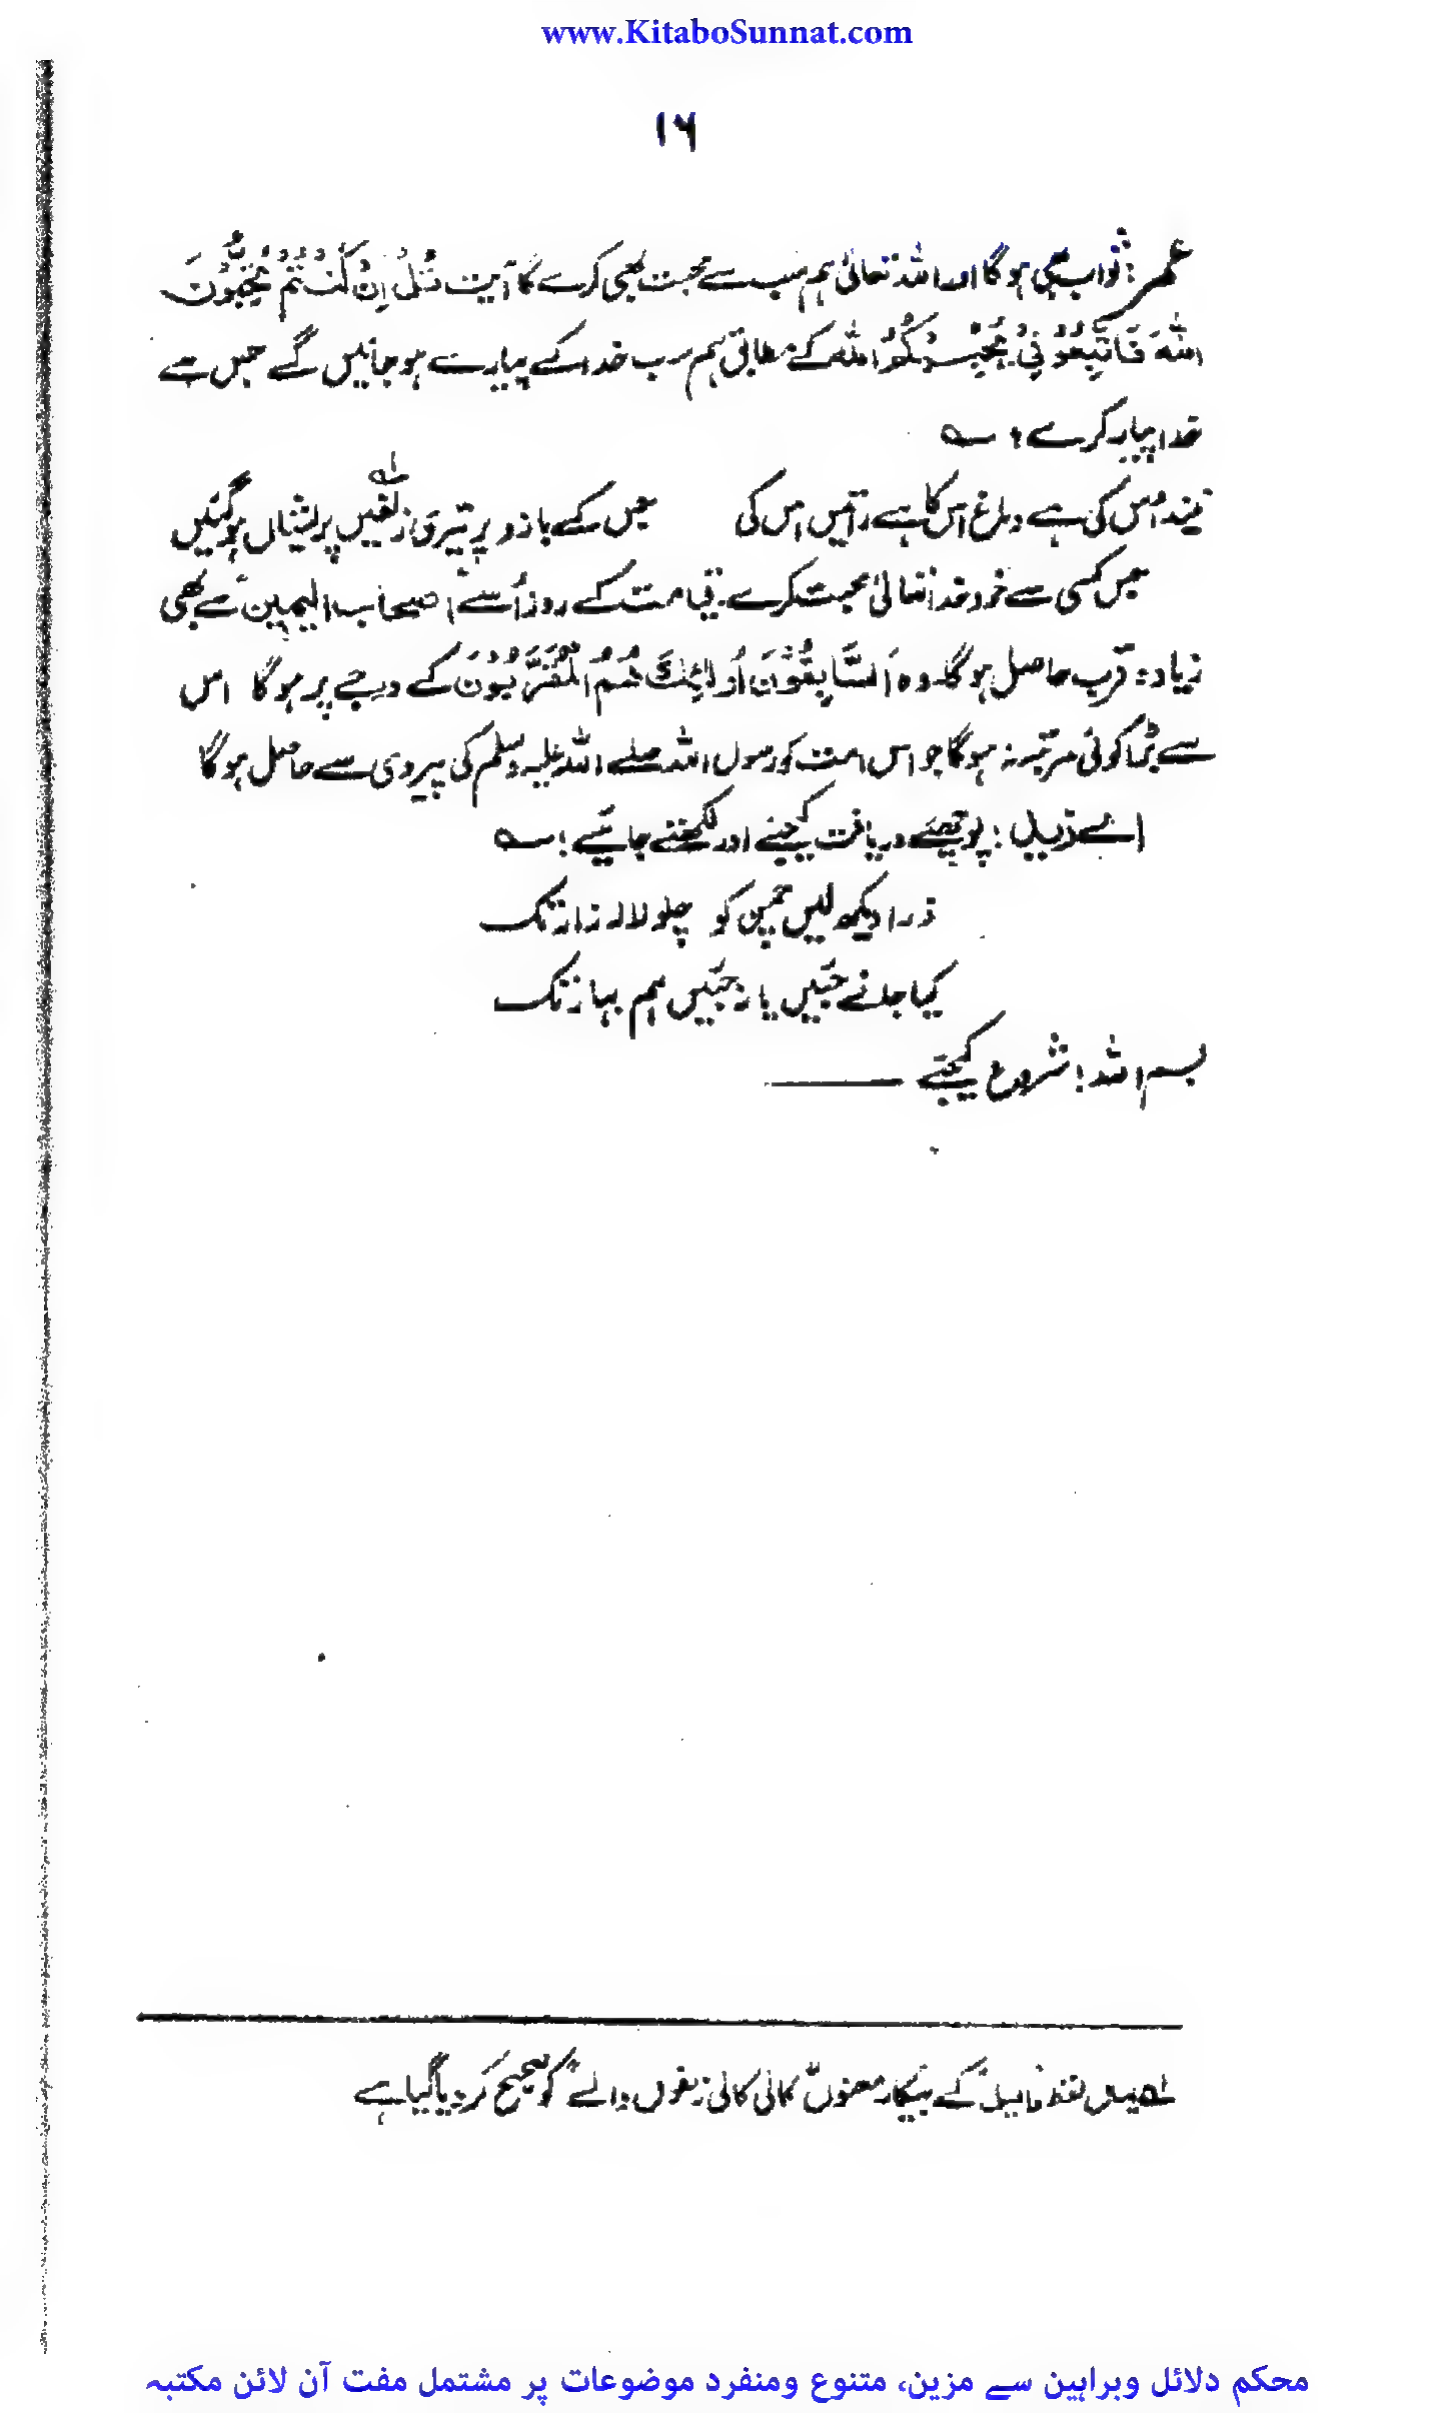 www.KitaboSunnat.com
۱۶
عمر : ثواب بھی ہوگا اور اللہ تعالیٰ ہم سب سے محبت بھی کرے گا آیت قُلْ اِنْ كُنْتُمْ تُحِبُّوْنَ
اللّٰهَ فَاتَّبِعُوْنِیْ يُحْبِبْكُمُ اللّٰهُ کے مطابق ہم سب خدا کے پیارے ہو جائیں گے جس سے
خدا پیار کرے ؛ ؎
نیند اُس کی ہے دماغ اس کا ہے راتیں اس کی جس کے بازو پر تیری زلفیں ؎۱ پریشاں ہوگئیں
جس کسی سے خود خدا تعالیٰ محبت کرے۔ قیامت کے روز اُسے اصحاب الیمین سے بھی
زیادہ قرب حاصل ہوگا۔ وہ اَلسَّابِقُوْنَ اُولٰئِكَ هُمُ الْمُقَرَّبُوْنَ کے درجے پر ہوگا اس
سے بڑا کوئی مرتبہ نہ ہوگا جو اس امت کو رسول اللہ صلے اللہ علیہ وسلم کی پیروی سے حاصل ہوگا
اے زید : پوچھئے دریافت کیجئے اور لکھتے جائیے ؛ ؎
ذرا دیکھ لیں چمن کو چلو لالہ زار تک
کیا جانے جئیں یا نہ جئیں ہم بہار تک
بسم اللہ ! شروع کیجئے ———
کے بیکار معنوں کالی کالی زلفوں والے کو صحیح کر دیا گیا ہے
محکم دلائل وبراہین سے مزین، متنوع ومنفرد موضوعات پر مشتمل مفت آن لائن مکتبہ